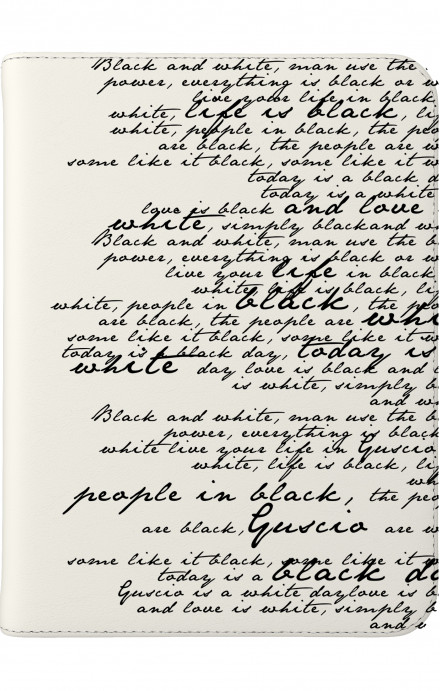 Black and white, man use the
power, everything is black or w
live your life in black
white, life is black, li
white, people in black, the peo
are black, the people are w
some like it black, some like it w
today is a black d
today is a white
love is black and love
white, simply black and w
Black and white, man use the b
power, everything is black or w
live your life in black
white, life is black, li
white, people in black, the peo
are black, the people are whi
some like it black, some like it w
today is a black day, today is
white day love is black and l
is white, simply b
and w
Black and white, man use the b
power, everything is black
white live your life in Guscio
white, life is black, li
wh
people in black, the peo
are black, Guscio are w
some like it black, some like it w
today is a black da
Guscio is a white daylove is b
and love is white, simply b
and